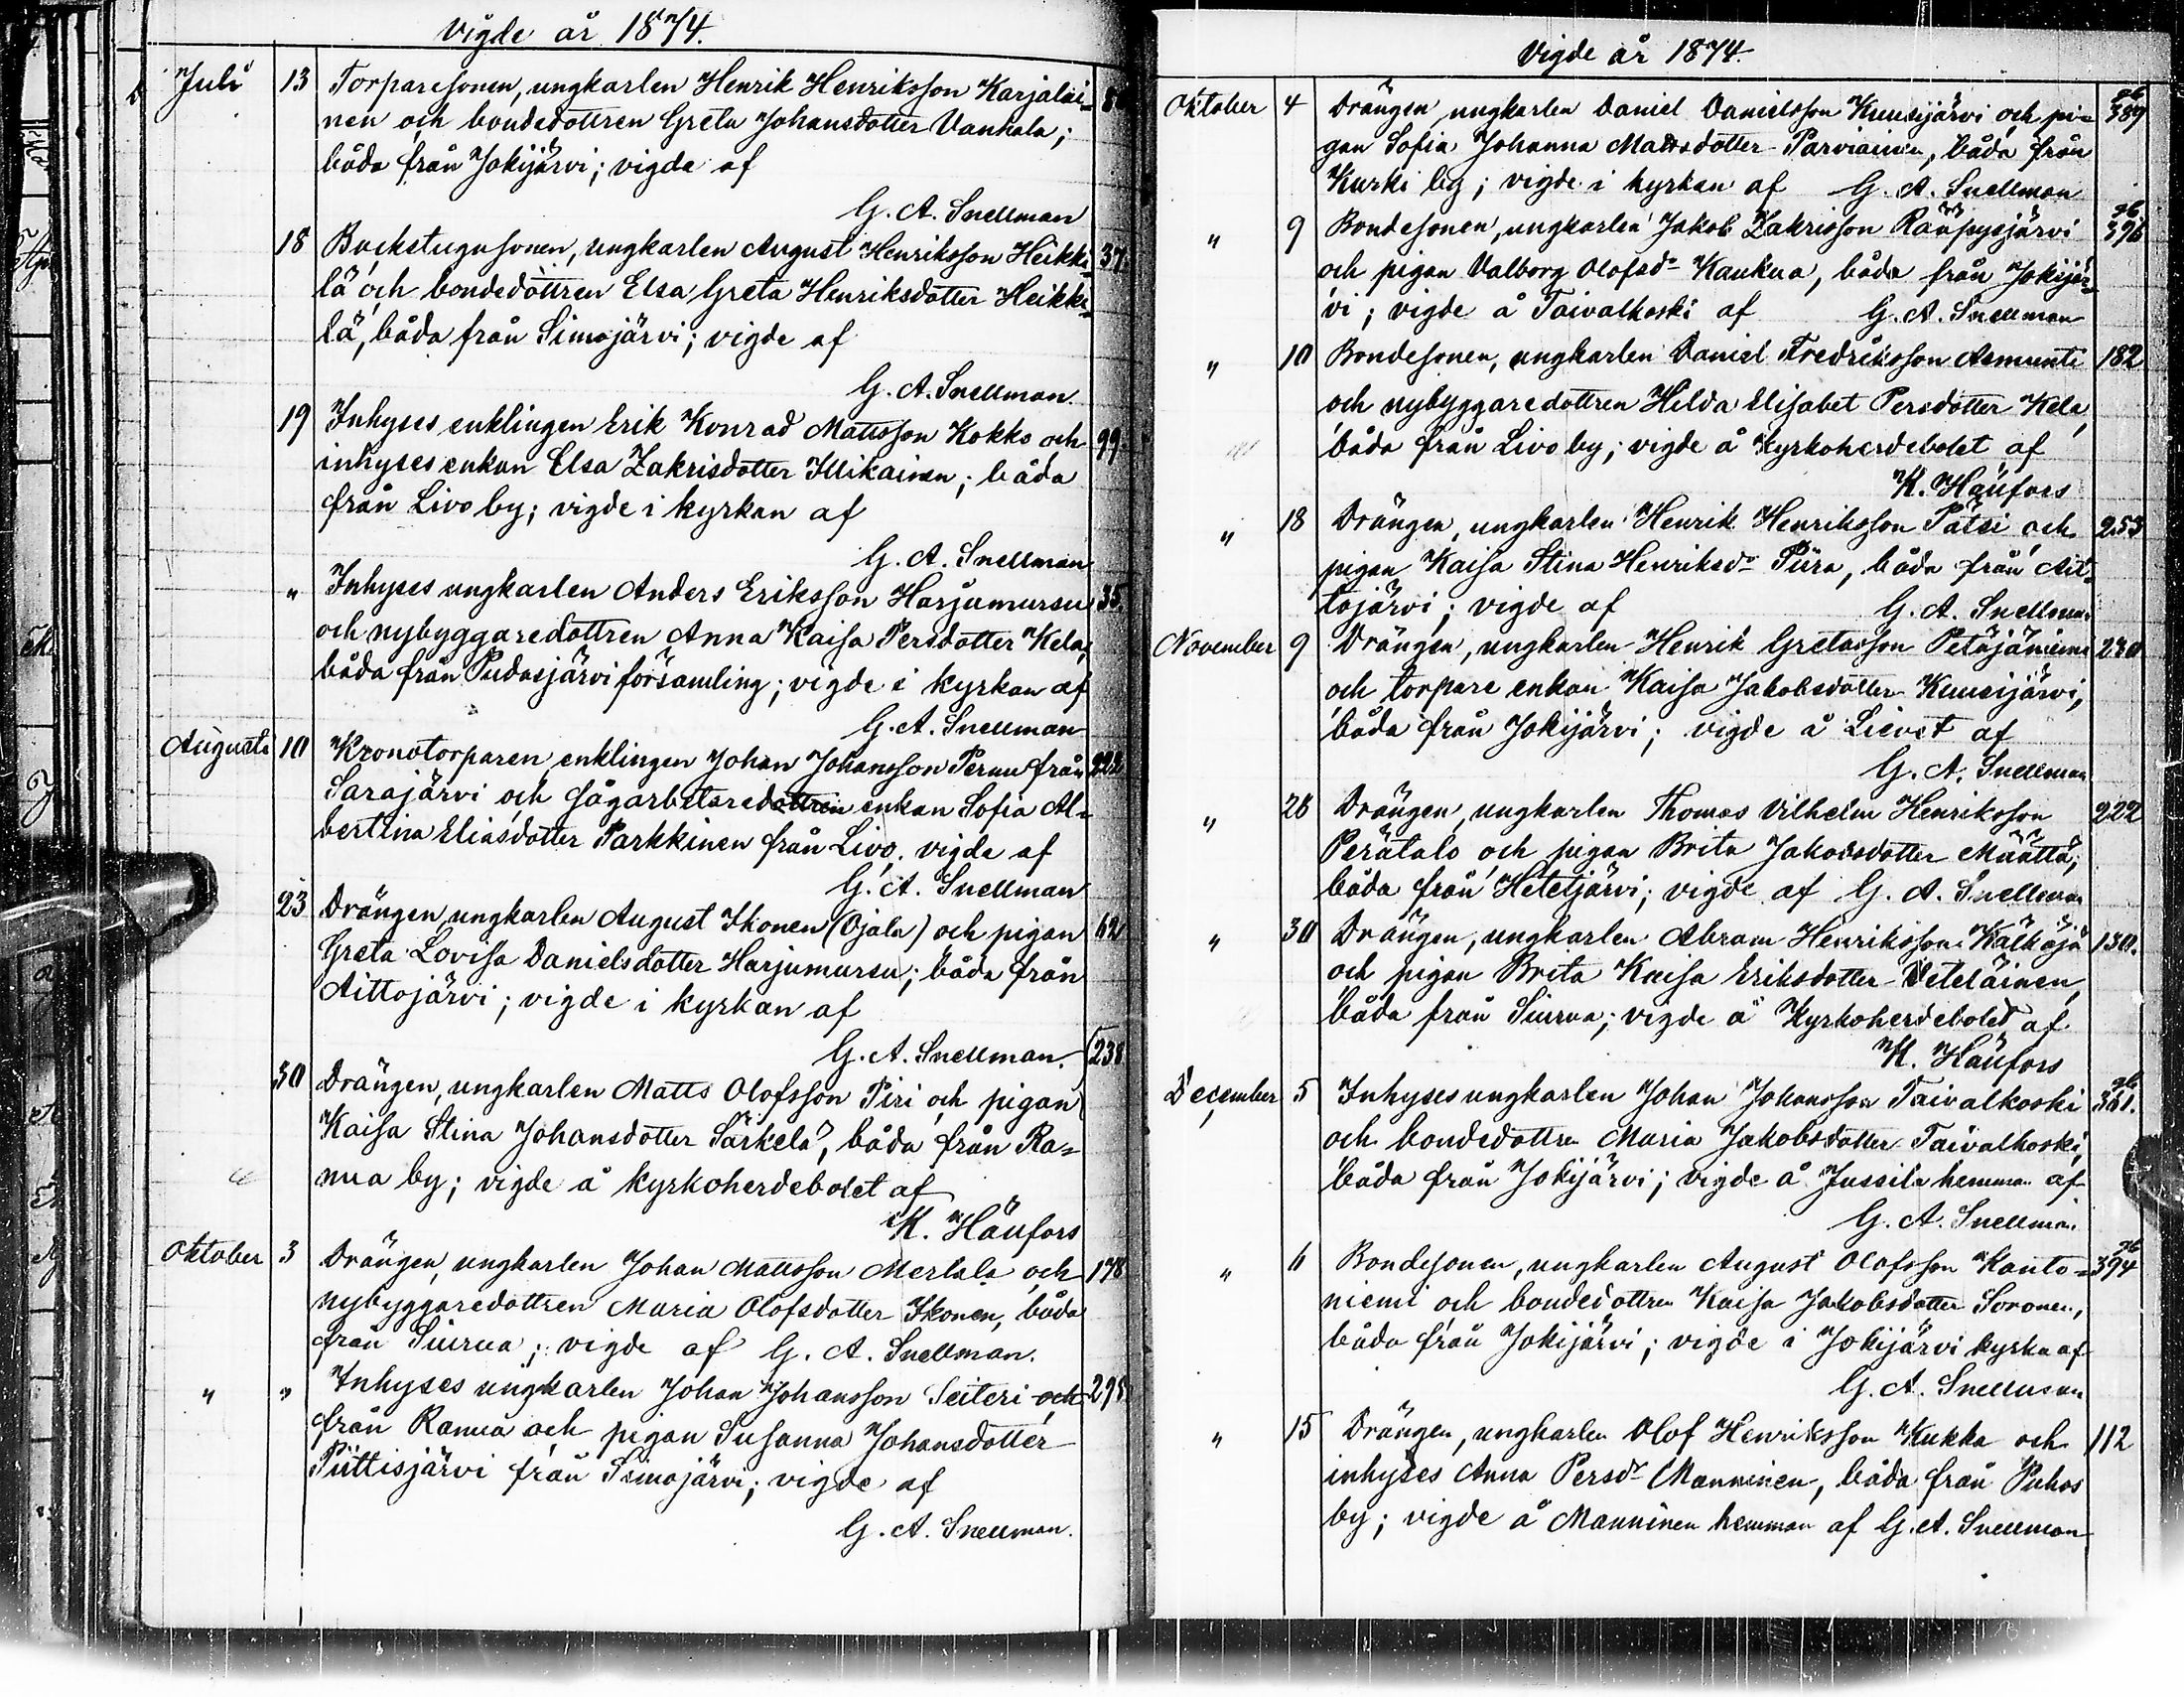 Vigde år 1874.
Juli 13 Torparesonen, ungkarlen Henrik Henriksson Karjalai-
nen och bondedottren Greta Johansdotter Vanhala;
båda från Jokijärvi; vigde af
G. A. Snellman
18 Backstugusonen, ungkarlen August Henriksson Heikki- 37.
lä och bondedottren Elsa Greta Henriksdotter Heikki-
lä, båda från Simojärvi; vigde af
G. A. Snellman.
19 Inhyses enklingen Erik Konrad Mattsson Kokko och 99.
inhyses enkan Elsa Zakrisdotter Illikainen; båda
från Livo by; vigde i kyrkan af
G. A. Snellman
" Inhyses ungkarlen Anders Eriksson Harjumursu 35.
och nybyggaredottren Anna Kaisa Persdotter Kela,
båda från Pudasjärvi församling; vigde i kyrkan af
G. A. Snellman
Augusti 10 Kronotorparen, enklingen Johan Johansson Pernu från 222
Sarajärvi och sågarbetaredottren enkan Sofia Al-
bertina Eliasdotter Parkkinen från Livo, vigde af
G. A. Snellman
23 Drängen, ungkarlen August Ikonen (Ojala) och pigan 62
Greta Lovisa Danielsdotter Harjumursu; båda från
Aittojärvi; vigde i kyrkan af
G. A. Snellman.
30 Drängen, ungkarlen Matts Olofsson Piri och pigan 238
Kaisa Stina Johansdotter Särkelä, båda från Ra-
nua by; vigde å kyrkoherdebolet af
K. Häufors
Oktober 3 Drängen, ungkarlen Johan Mattsson Mertala och 178
nybyggaredottren Maria Olofsdotter Ikonen, båda
från Siurua; vigde af G. A. Snellman.
" " Inhyses ungkarlen Johan Johansson Seiteri och 295
från Ranua och pigan Susanna Johansdotter
Piittisjärvi från Simojärvi; vigde af
G. A. Snellman.
Vigde år 1874.
Oktober 4 Drängen ungkarlen Daniel Danielsson Kuusijärvi och pi- 389
gan Sofia Johanna Mattsdotter Parviainen, båda från
Kurki by; vigde i kyrkan af G. A. Snellman
" 9 Bondesonen, ungkarlen Jakob Zakrisson Rääpysjärvi 396
och pigan Valborg Olofsdr Kaukua, båda från Jokijär-
vi; vigde å Taivalkoski af G. A. Snellman
" 10 Bondesonen, ungkarlen Daniel Fredriksson Asmunti 182
och nybyggaredottren Hilda Elisabet Persdotter Kela,
båda från Livo by; vigde å Kyrkoherdebolet af
K. Häufors
" 18 Drängen, ungkarlen Henrik Henriksson Pätsi och 253
pigan Kaisa Stina Henriksdr Piira, båda från Ait-
tojärvi; vigde af G. A. Snellman
November 9 Drängen, ungkarlen Henrik Gretasson Petäjäniemi 230
och torpare enkan Kaisa Jakobsdotter Kuusijärvi,
båda från Jokijärvi; vigde å af
G. A. Snellman
" 26 Drängen, ungkarlen Thomas Vilhelm Henriksson 222
Perätalo och pigan Brita Jakobsdotter Määttä,
båda från Hetejärvi; vigde af G. A. Snellman
" 30 Drängen, ungkarlen Abram Henriksson Kälkäjä 130.
och pigan Brita Kaisa Eriksdotter Veteläinen,
båda från Siurua; vigde å Kyrkoherdebolet af
K. Häufors
December 5 Inhyses ungkarlen Johan Johansson Taivalkoski 361.
och bondedottren Maria Jakobsdotter Taivalkoski,
båda från Jokijärvi; vigde å Jussila hemman af
G. A. Snellman.
" 6 Bondesonen, ungkarlen August Olofsson Kanto- 394
niemi och bondedottren Kaisa Jakobsdotter Soronen,
båda från Jokijärvi; vigde i Jokijärvi kyrka af
G. A. Snellman
" 15 Drängen, ungkarlen Olof Henriksson Kukka och 112
inhyses Anna Persdr Manninen, båda från Puhos
by; vigde å Manninen hemman af G. A. Snellman